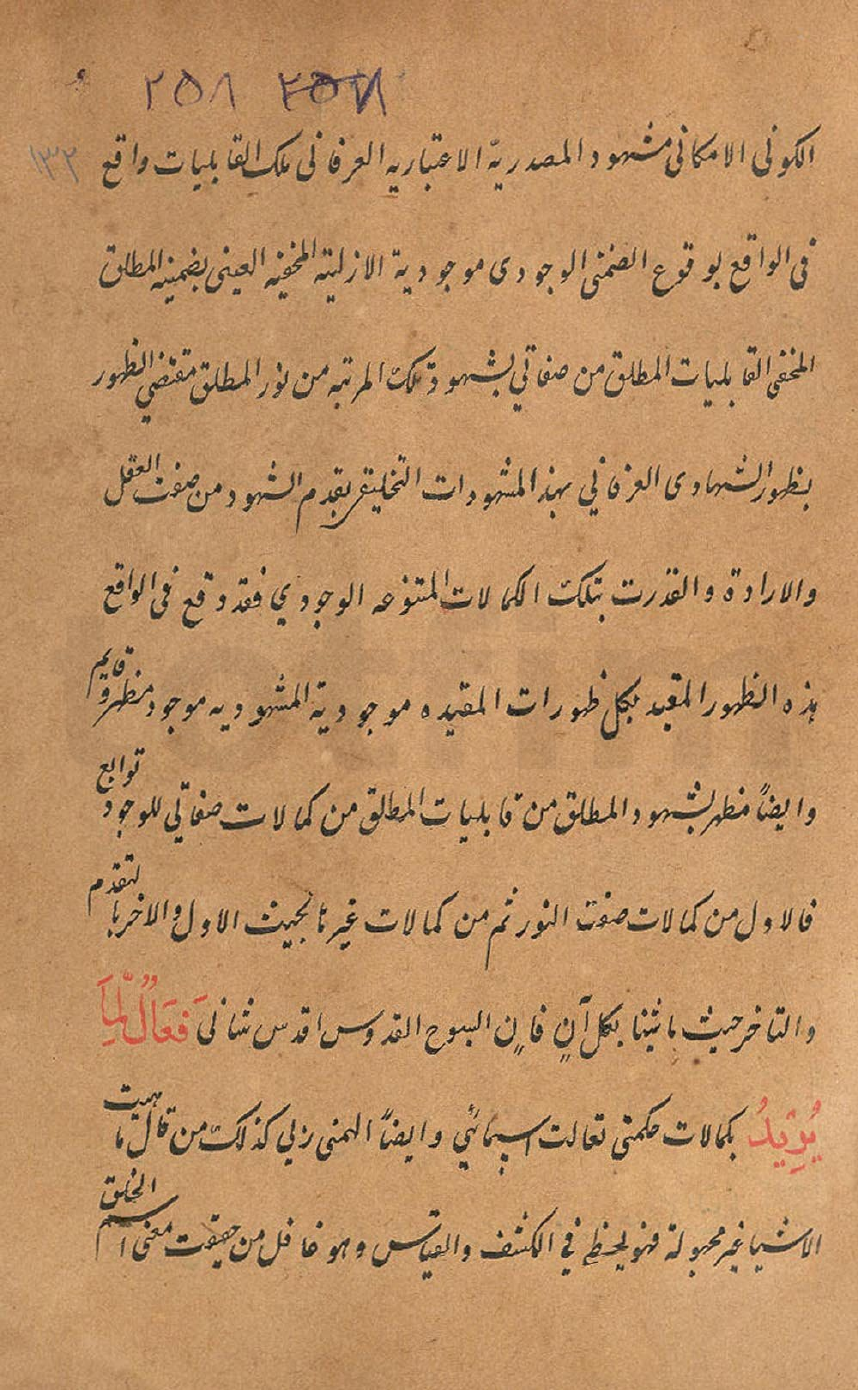 ٢٥٨ ٢٥٨
١٣٢
الكونى الامكانى مشهود المصدرية الاعتباريه العرفانى تلك القابليات واقع
فى الواقع بوقوع الضمنى الوجودى موجودية الازليته المخفيه العينى بضمنيه المطلق
المخفى القابليات المطلق من صفاتي بشهود تلك المرتبه من نور المطلق مقتضى الظهور
بظهور الشهادى العرفاني بهذ المشهودات التخليقى بقدم الشهود من صفت العقل
والارادة والقدرت بتلك الكمالات المتنوعه الوجودي فقد وقع فى الواقع
هذه الظهور المقيد بكل ظهورات المقيده موجودية المشهوديه موجود مظهر وقايم
وايضاً مظهر بشهود المطلق من قابليات المطلق من كمالات صفاتي للوجود توابع
فالاول من كمالات صفت النور ثم من كمالات غيرنا بحيث الاول والاخر با لتقدم
والتاخر حيث ما شئنا بكل آنٍ فانٍ السبوح القدوس اقدس شانى فَعَالٌ لِّمَا
يُرِيدُ بكمالات حكمتى تعالت اسمائي وايضاً الهمنى ربى كذلك من قال ماهيت
الاشيا غير مجهولة فهو يلحظ في الكشف والقياس وهو غافل من حقيقت معنى اسم الخلق